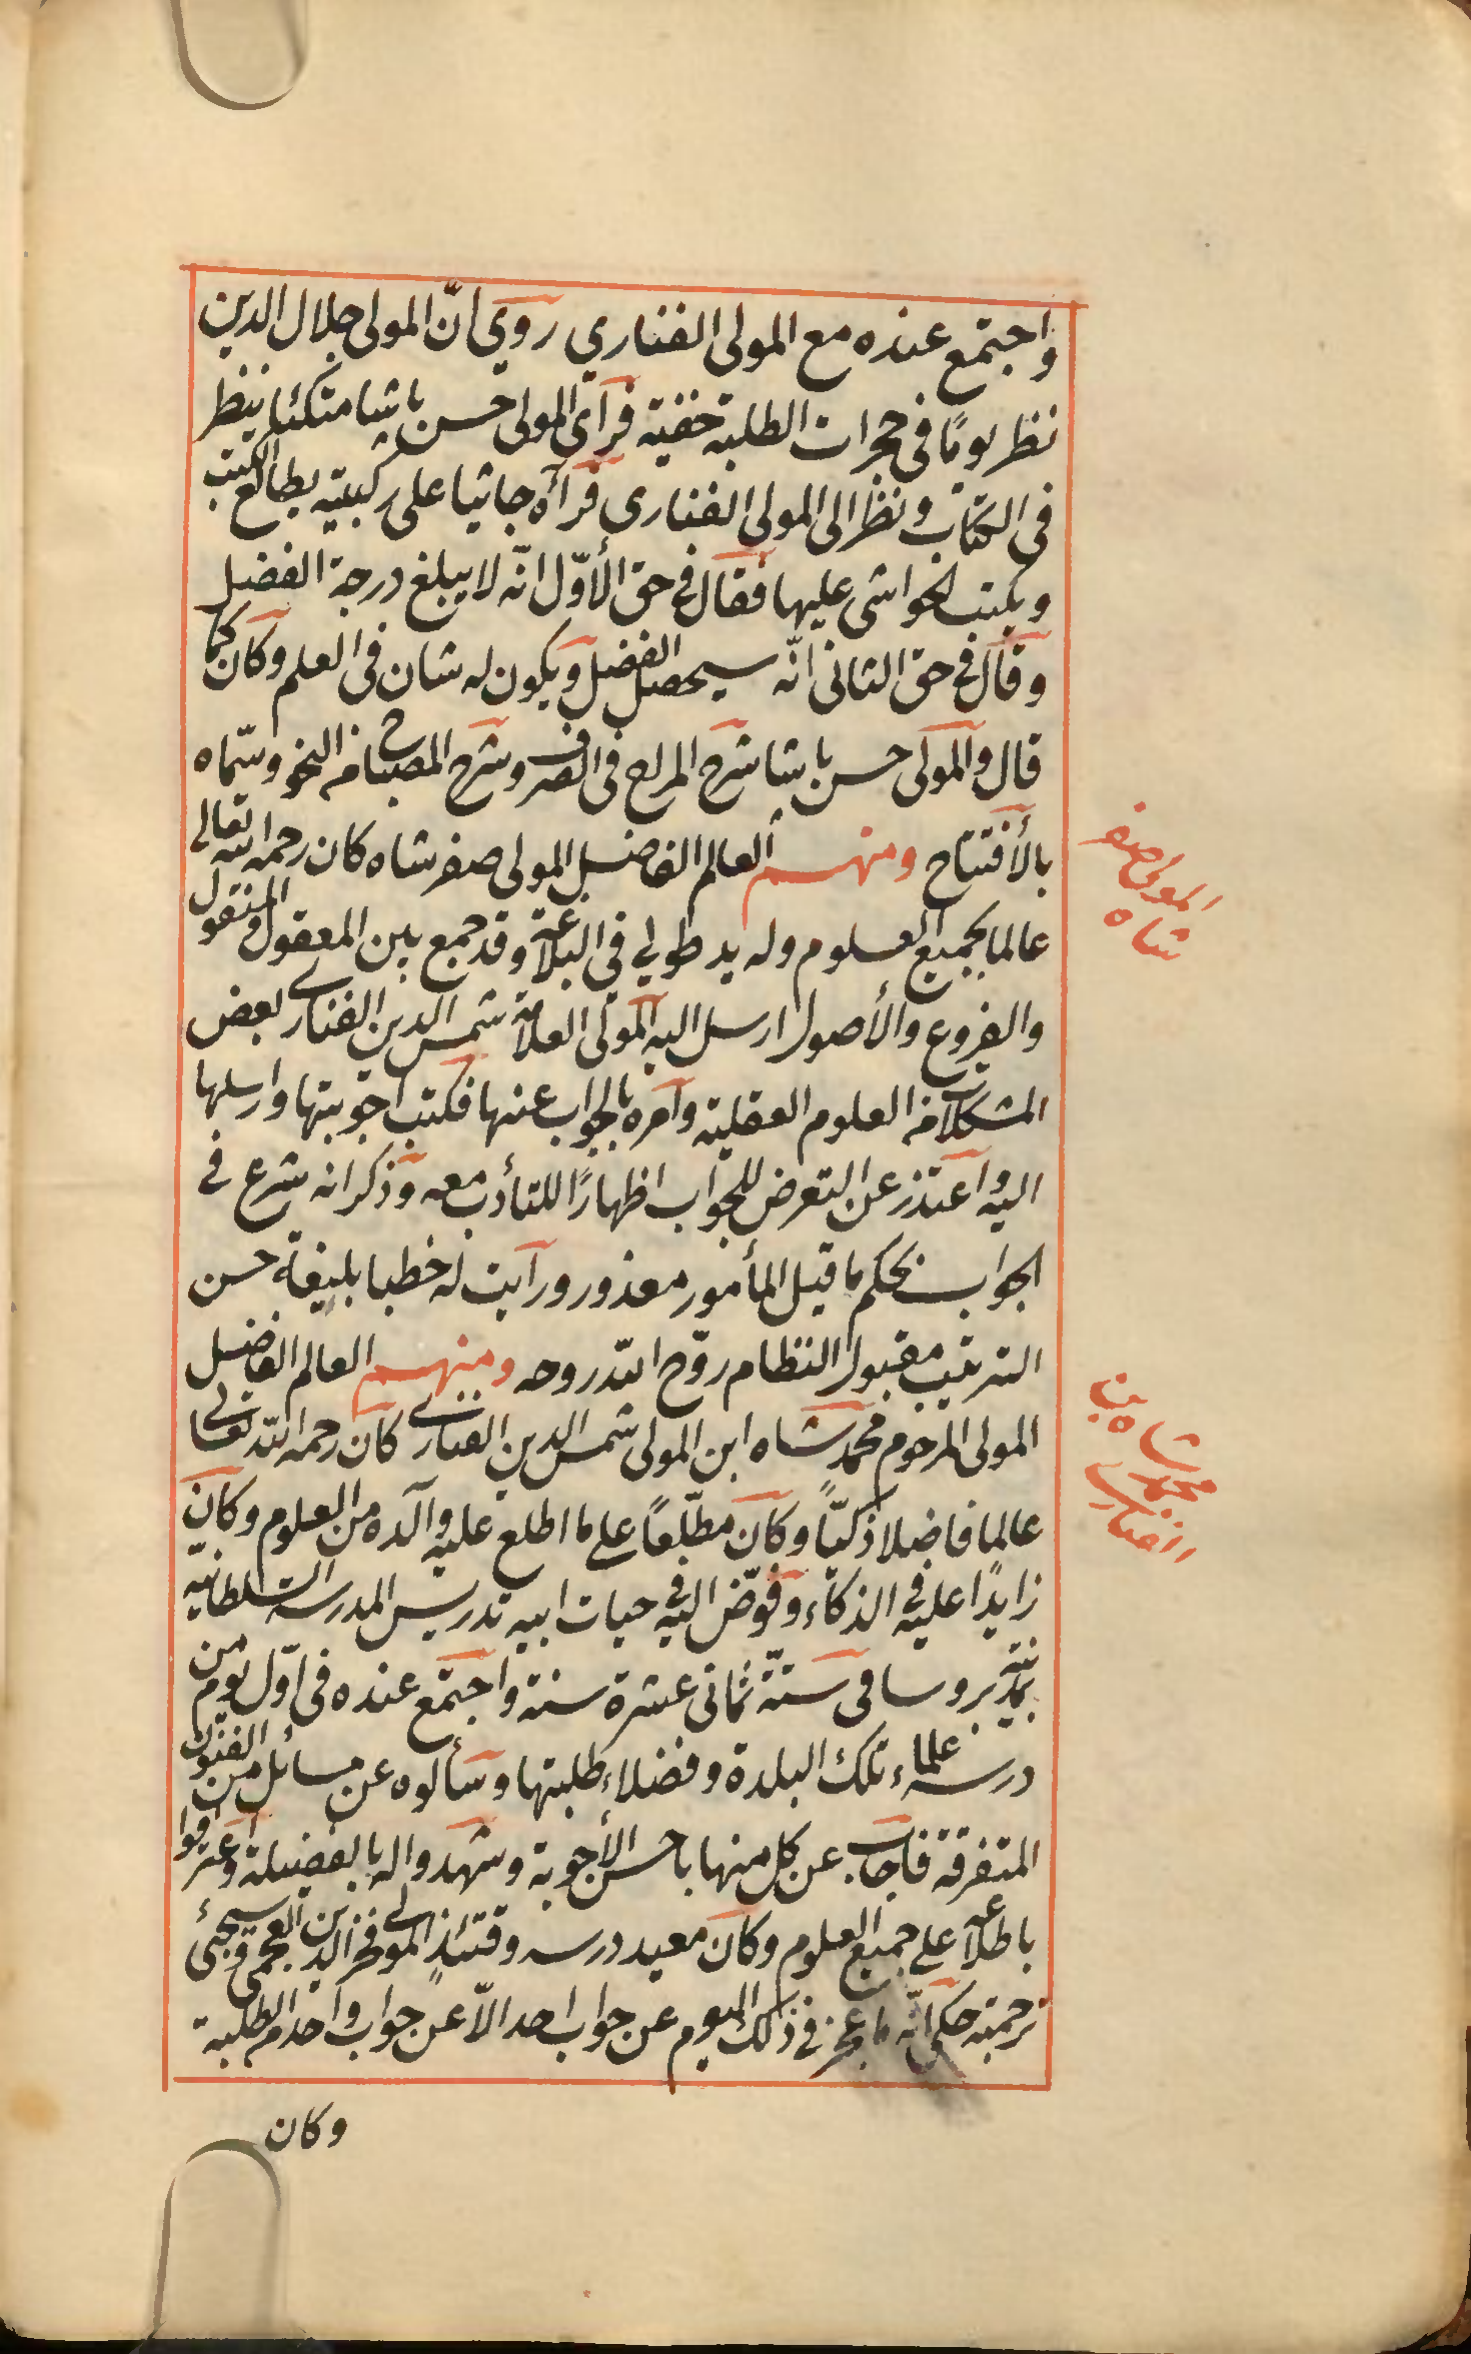 واجتمع عنده مع المولى الفناري روي انّ المولى جلال الدين
نظر يومًا فى حجرات الطلبة خفية فرآى المولى حسن باشا متكئا ينظر
فى الكتاب ونظر الى المولى الفنارى فرآه جاثيا على ركبتيه يطالع الكتب
ويكتب الحواشى عليها فقال فى حق الأوّل انّه لا يبلغ درجة الفضل
وقال فى حق الثانى انّه سيحصل الفضل ويكون له شان فى العلم وكان كما
قال والمولى حسن باشا شرح المراح فى الصرف وشرح المصباح فى النحو وسمّاه
بالأفتتاح ومنهم العالم الفاضل المولى صفر شاه كان رحمه الله تعالى
عالما بجميع العلوم وله يد طولي في البلاغة وقد جمع بين المعقول والمنقول
والفروع والأصول ارسل اليه المولى العلامة شمس الدين الفنارى بعض
المشكلات من العلوم العقلية وامره بالجواب عنها فكتب اجوبتها وارسلها
اليه واعتذر عن التعرض للجواب اظهارًا للتأدب معه وذكر انه شرع فى
الجواب بحكم ما قيل المأمور معذور ورآيت له خطبا بليغة حسن
الترتيب مقبول النظام روّح الله روحه ومنهم العالم الفاضل
المولى المرحوم محمد شاه ابن المولى شمس الدين الفنارى كان رحمه الله تعالى
عالمًا فاضلا ذكيّاً وكان مطّلعاً على ما اطلع عليه والده من العلوم وكان
زايدًا عليه فى الذكاء وفوّض اليه فى حيات ابيه تدريس المدرسة السلطانية
بمدينة بروسا فى سنّة ثمانى عشرة سنة واجتمع عنده فى اوّل يوم من
درسه علماء تلك البلدة وفضلاء طلبتها وسألوه عن مسائل من الفنون
المتفرقة فاجاب عن كل منها باحسن الأجوبة وشهدوا له بالفضيلة واعترفوا
باطلاعه على جميع العلوم وكان معيد درسه وقتئذٍ المولى فخر الدين العجمى وسيجئ
ترجمته حكى انّه ما عجز فى ذلك اليوم عن جواب احد الاّ عن جواب واحد من الطلبة
وكان
المولى صفر
شاه
محمد شاه بن
الفنارى